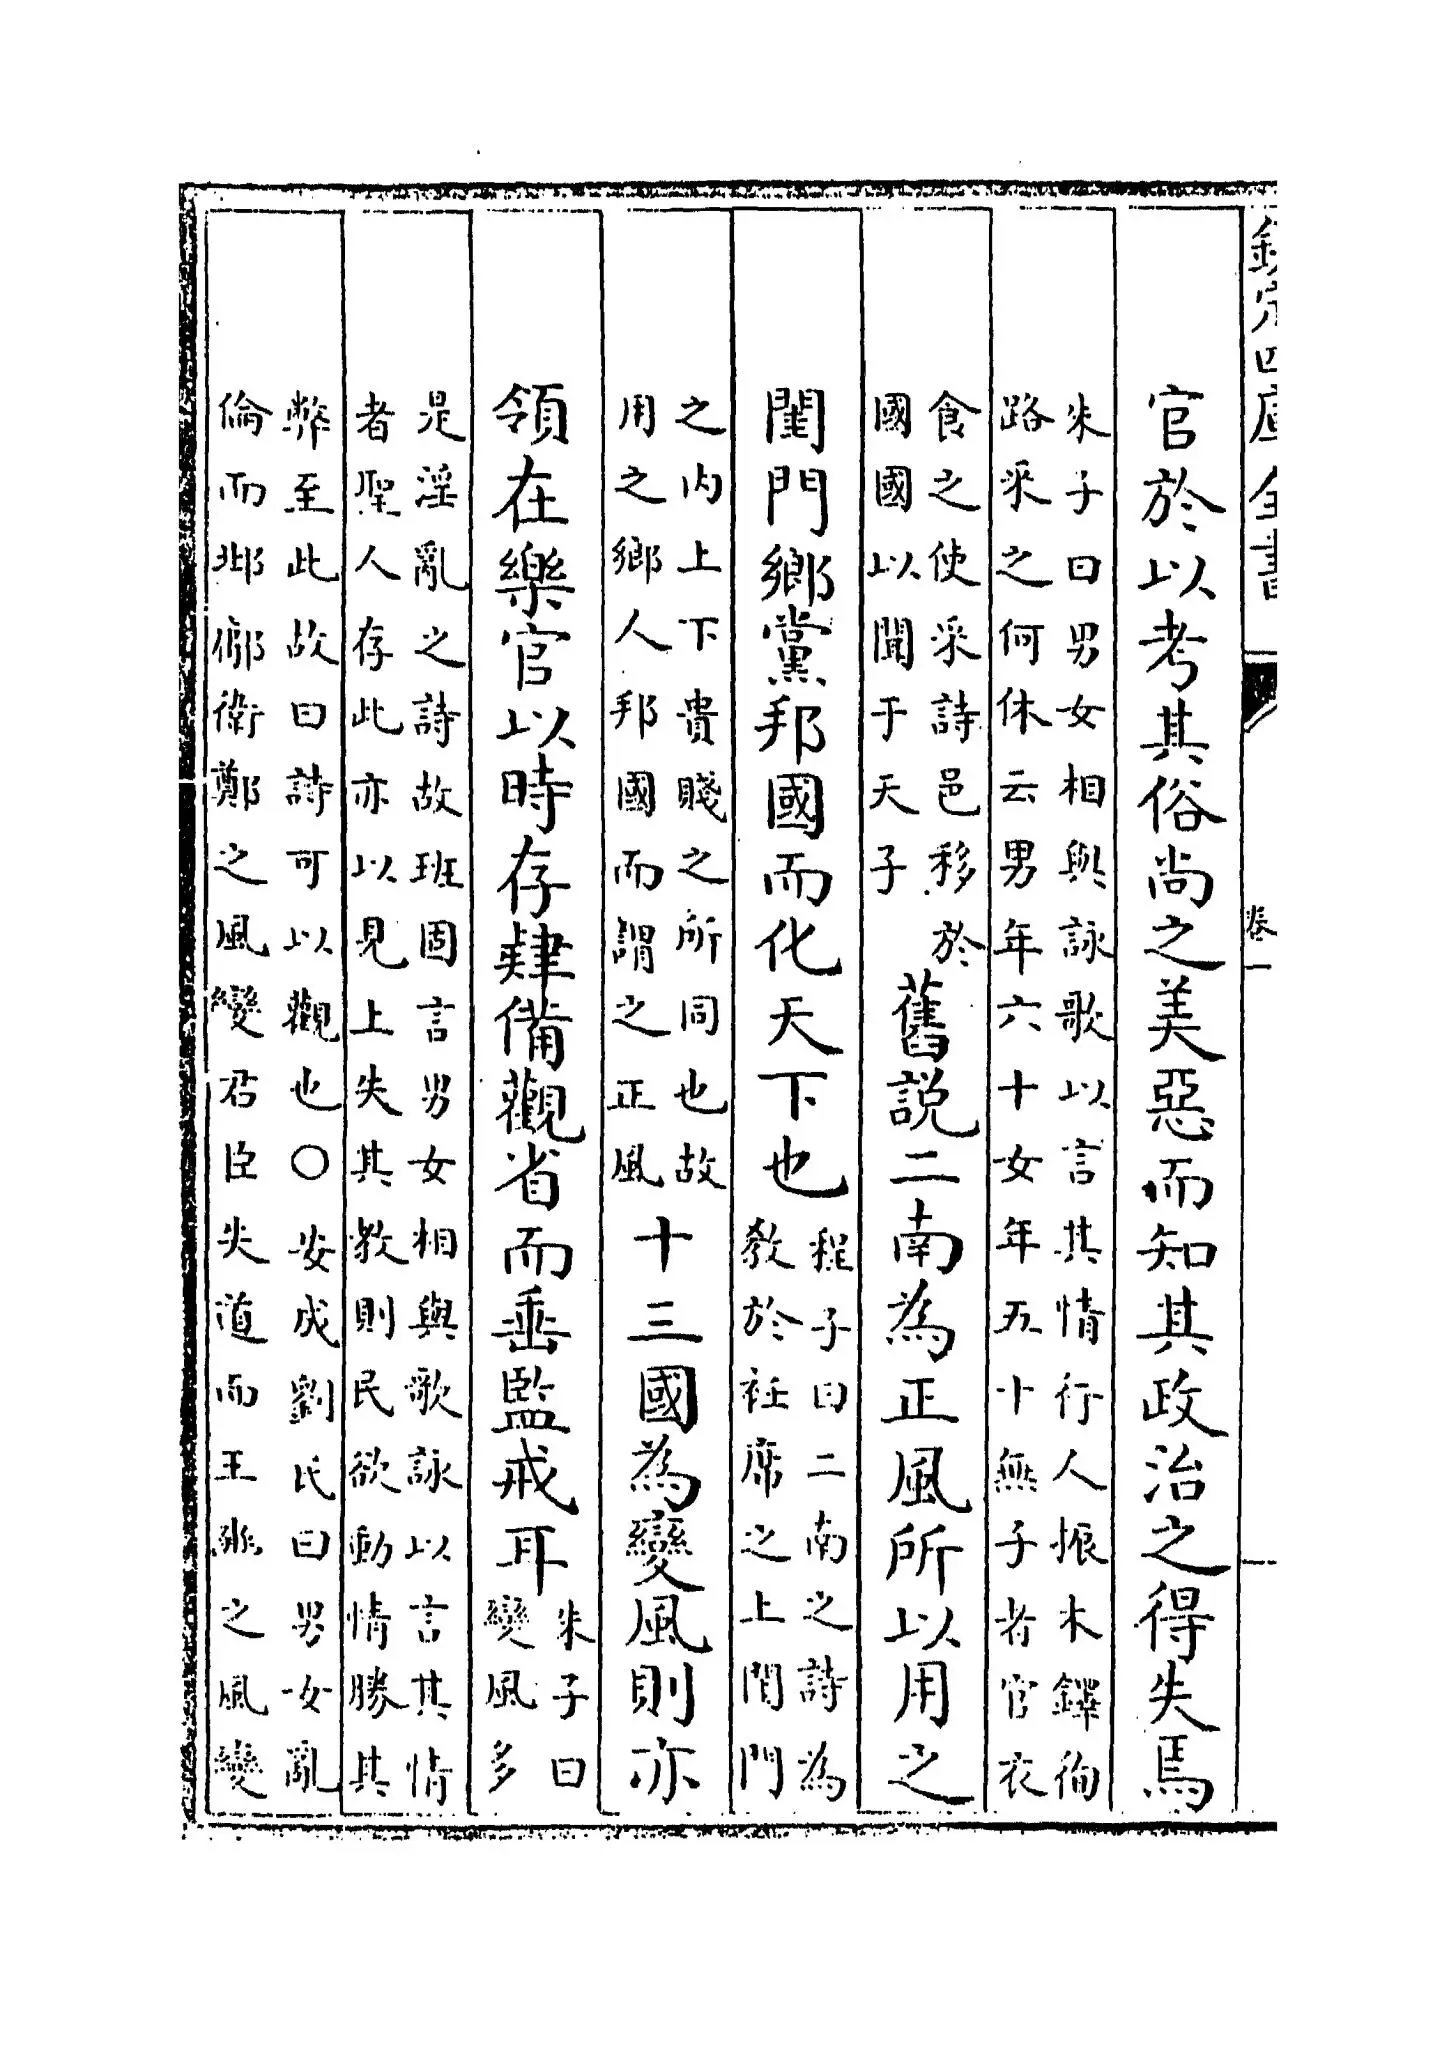 欽定四庫全書
卷一
官於以考其俗尚之美惡而知其政治之得失焉
朱子曰男女相與詠歌以言其情行人振木鐸徇
路采之何休云男年六十女年五十無子者官衣
食之使采詩邑移於
國國以聞于天子
舊説二南為正風所以用之
閨門鄉黨邦國而化天下也
程子曰二南之詩為
教於衽席之上閨門
之内上下貴賤之所同也故
用之鄉人邦國而謂之正風
十三國為變風則亦
領在樂官以時存肄備觀省而垂監戒耳
朱子曰
變風多
是淫亂之詩故班固言男女相與歌詠以言其情
者聖人存此亦以見上失其教則民欲動情勝其
弊至此故曰詩可以觀也〇安成劉氏曰男女亂
倫而邶鄘衛鄭之風變君臣失道而王雅之風變